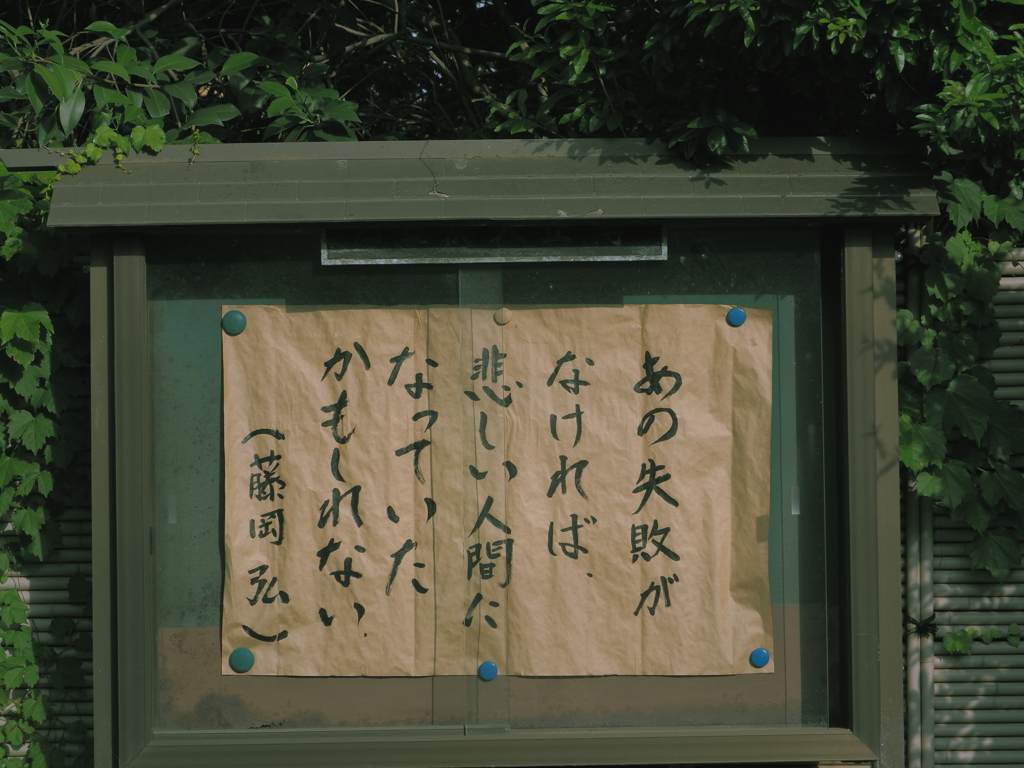 あの失敗が
なければ、
悲しい人間に
なっていた
かもしれない.
(藤岡 弘)